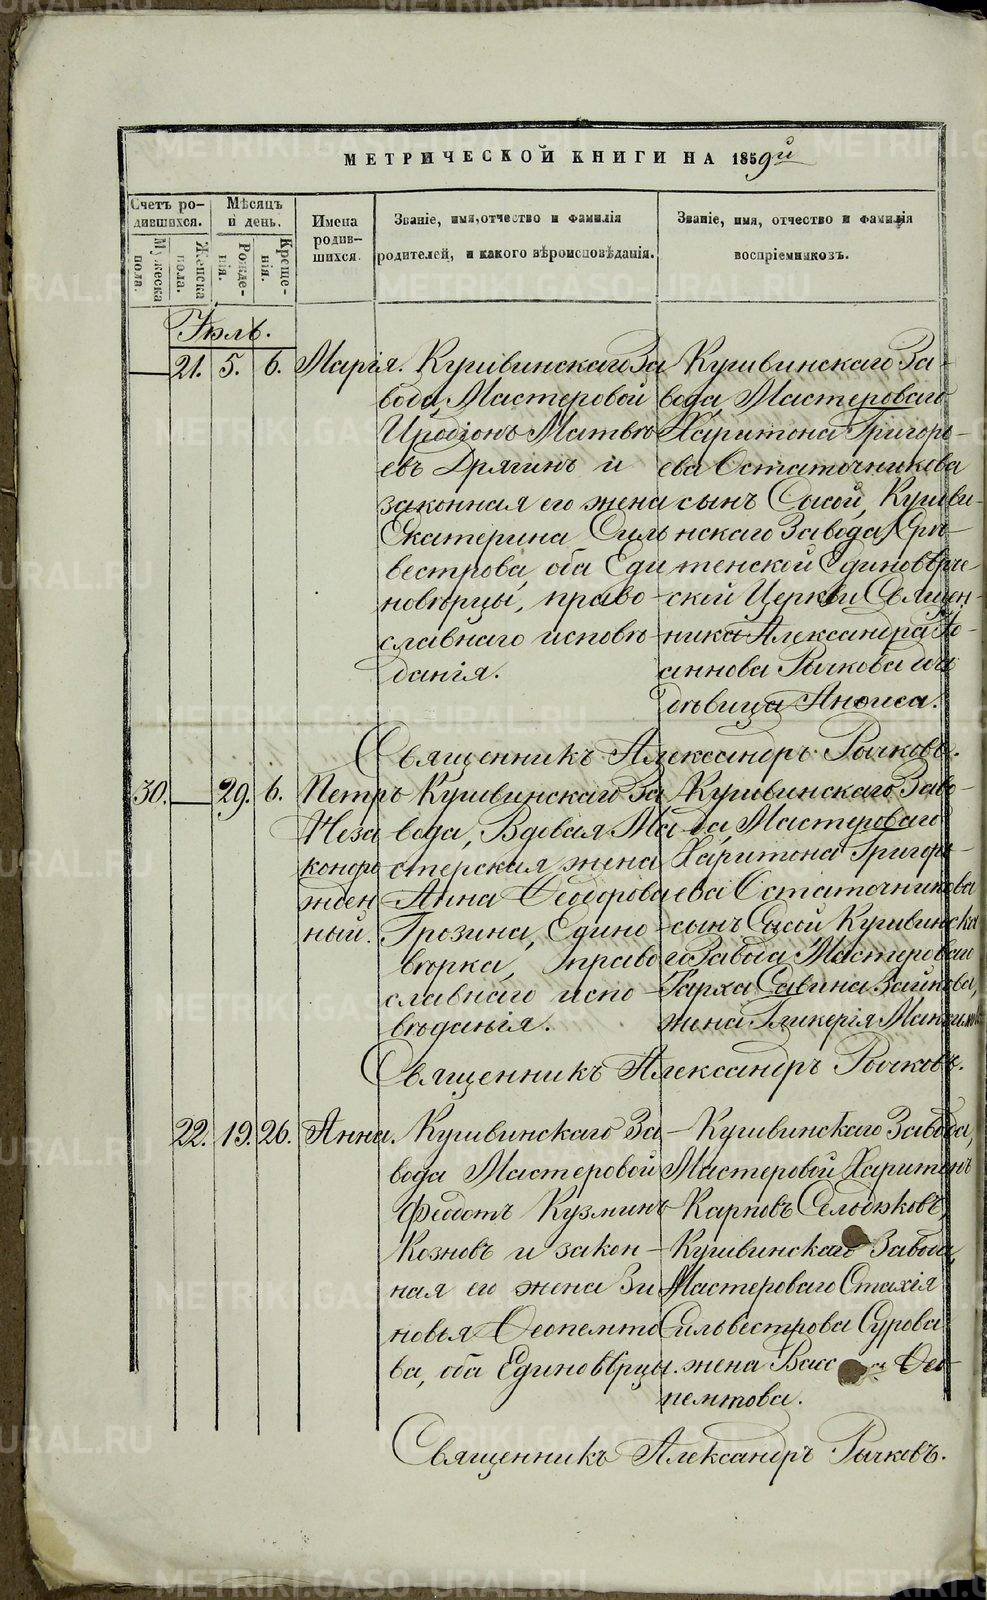 МЕТРИЧЕСКОЙ КНИГИ НА 1859й
Счетъ ро-
дившихся.
Мужеска
пола.
Женска
пола.
Мѣсяцъ
и день.
Рожде-
нія.
Креще-
нія.
Имена
родив-
шихся.
Званіе, имя, отчество и фамилія
родителей, и какого вѣроисповѣданія.
Званіе, имя, отчество и фамилія
воспріемниковъ.
Іюль.
21. 5. 6. Марія.
Кушвинскаго За
вода, Мастеровой
Иродіонъ Матвѣ
евъ Дрягинъ и
законная его жена
Екатерина Силь
вестрова, оба Еди
новѣрцы, право-
славнаго исповѣ-
данія.
Кушвинскаго За-
вода, Мастероваго
Харитона Григорь-
ева Остаточникова
сынъ Сысой, Кушви-
нскаго Завода, Срѣ-
тенской Единовѣрче-
ской Церкви Священ-
ника Александра Іо-
аннова Рычкова дчь
дѣвица Аноиса.
Священникъ Александръ Рычковъ.
30. 29. 6. Петръ
Неза
конро
жден
ный.
Кушвинскаго За
вода, Вдовая Ма
стерская жена
Анна Ѳеодорова
Грозина, Едино-
вѣрка, право
славнаго испо-
вѣданія.
Кушвинскаго Заво-
да, Мастероваго
Харитона Григорь-
ева Остаточникова
сынъ Сысой Кушвинска
го Завода Мастероваго
Тарха Савина Зайкова,
жена Гликерія Максимов
Священникъ Александръ Рычковъ.
22. 19. 26. Анна.
Кушвинскаго За-
вода Мастеровой
Ѳедотъ Кузминъ
Козновъ и закон-
ная его жена Зи
новья Ѳеопемпто
ва, оба Единовѣрцы.
Кушвинскаго Завода,
Мастеровой Харитонъ
Карповъ Селодковъ,
Кушвинскаго Завода,
Мастероваго Стахія
Сильвестрова Сурова
жена Васса Ѳео-
пемтова.
Священникъ Александръ Рычковъ.
METRIKI.GASO-URAL.RU